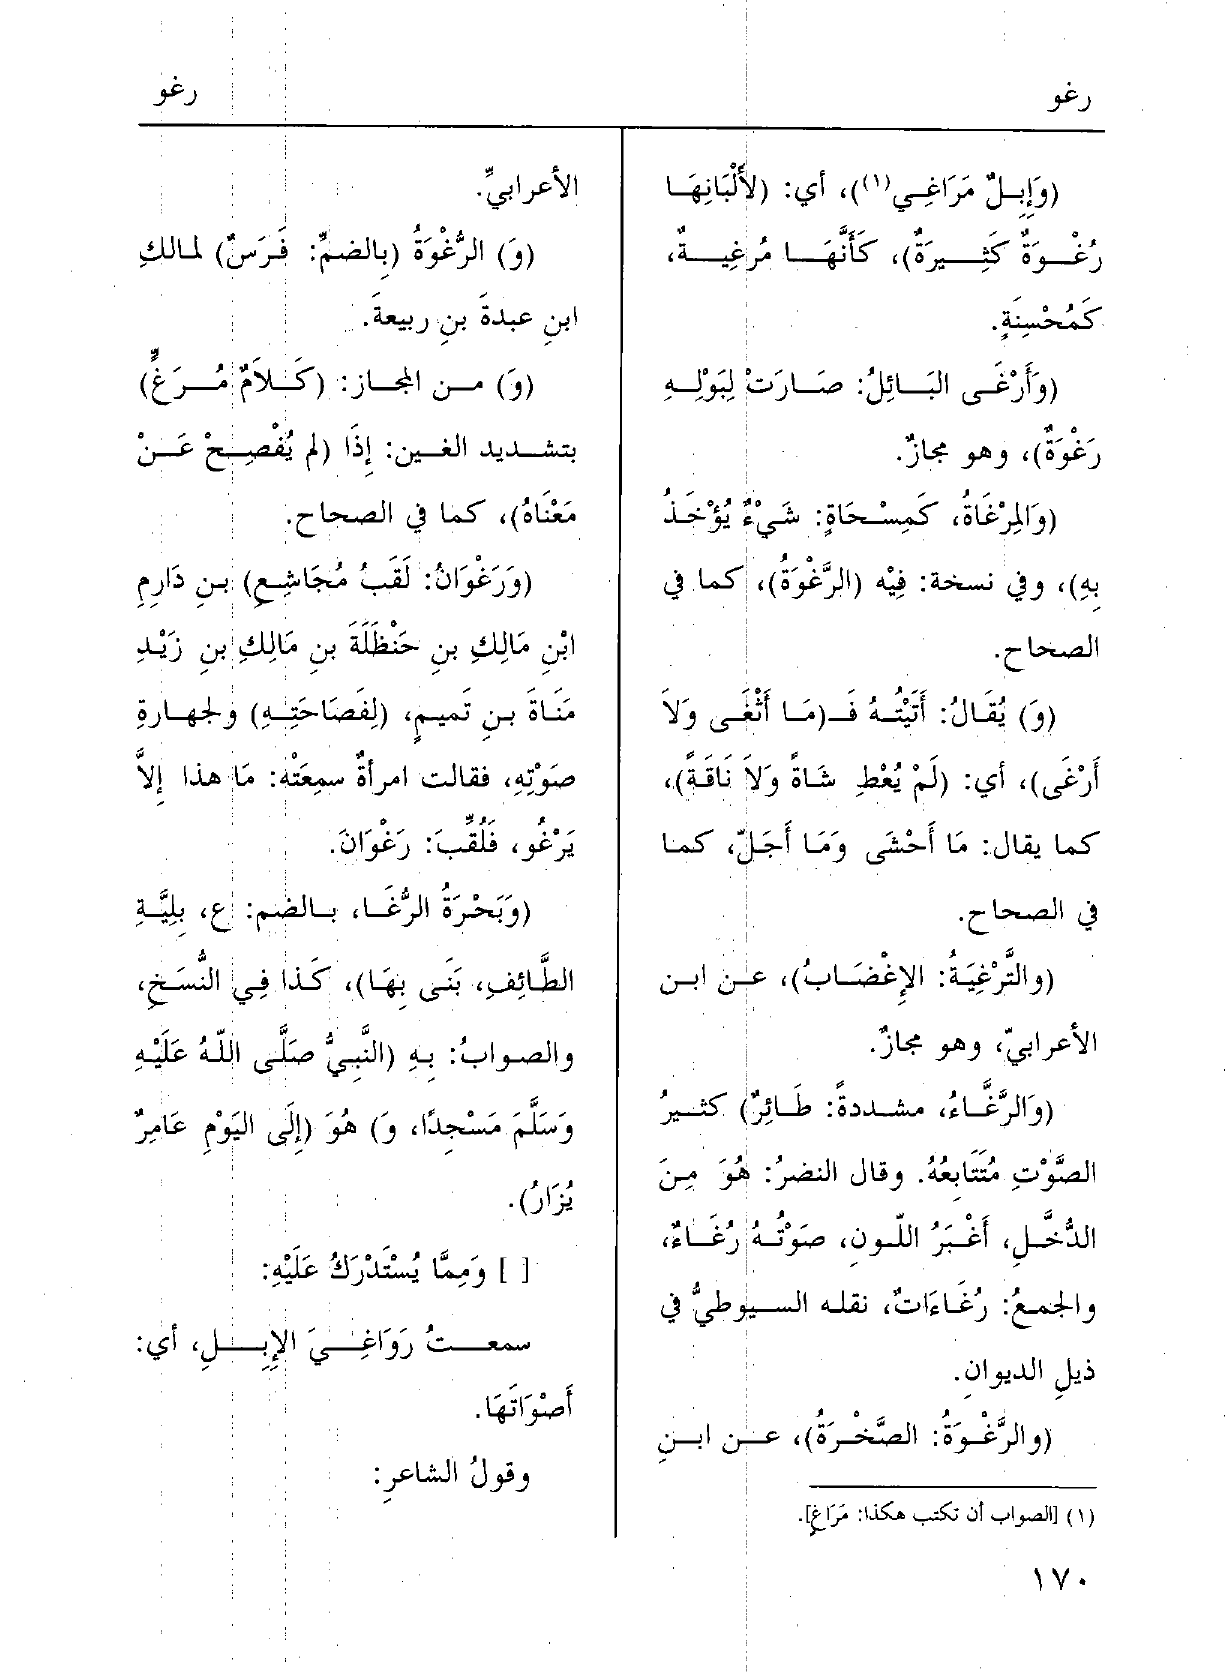 رغو
رغو
(وَإِبِلٌ مَرَاغِي(١))، أي: (لأَلْبَانِهَا
رُغْوَةٌ كَثِيرَةٌ)، كَأَنَّهَا مُرْغِيةٌ،
كَمُحْسِنَةٍ.
(وَأَرْغَى البَائِلُ: صَارَتْ لِبَوْلِهِ
رَغْوَةٌ)، وهو مجازٌ.
(وَالمِرْغَاةُ، كَمِسْحَاةٍ: شَيْءٌ يُؤْخَذُ
بِهِ)، وفي نسخة: فِيْه (الرَّغْوَةُ)، كما في
الصحاح.
(وَ) يُقَالُ: أَتَيْتُهُ فَـ(مَا أَثْغَى وَلاَ
أَرْغَى)، أي: (لَمْ يُعْطِ شَاةً وَلاَ نَاقَةً)،
كما يقال: مَا أَحْشَى وَمَا أَجَلّ، كما
في الصحاح.
(والتَّرْغِيَةُ: الإِغْضَابُ)، عن ابن
الأعرابيّ، وهو مجازٌ.
(وَالرَّغَّاءُ، مشددةً: طَائِرٌ) كثيرُ
الصَّوْتِ مُتَتَابِعُهُ. وقال النضرُ: هُوَ مِنَ
الدُّخَّلِ، أَغْبَرُ اللّونِ، صَوْتُهُ رُغَاءٌ،
والجمعُ: رُغَاءَاتٌ، نقله السيوطيُّ في
ذيلِ الديوانِ.
(والرَّغْوَةُ: الصَّخْرَةُ)، عن ابنِ
(١) [الصواب أن تكتب هكذا: مَرَاغٍ].
الأعرابيِّ.
(وَ) الرُّغْوَةُ (بِالضمِّ: فَرَسٌ) لمالكِ
ابنِ عبدةَ بنِ ربيعةَ.
(وَ) من المجاز: (كَلاَمٌ مُرَغٍّ)
بتشديد الغين: إِذَا (لم يُفْصِحْ عَنْ
مَعْنَاهُ)، كما في الصحاح.
(وَرَغْوَانُ: لَقَبُ مُجَاشِعِ) بنِ دَارِمِ
ابْنِ مَالِكِ بنِ حَنْظَلَةَ بنِ مَالِكِ بنِ زَيْدِ
مَنَاةَ بنِ تَميمٍ، (لِفَصَاحَتِهِ) ولجهارةِ
صَوْتِهِ، فقالت امرأةٌ سمِعَتْه: مَا هذا إِلاَّ
يَرْغُو، فَلُقِّبَ: رَغْوَانَ.
(وَبَحْرَةُ الرُّغَا، بالضم: ع، بلِيَّةِ
الطَّائِفِ، بَنَى بِهَا)، كَذا فِي النُّسَخِ،
والصوابُ: بِهِ (النَّبِيُّ صَلَّى اللّهُ عَلَيْهِ
وَسَلَّمَ مَسْجِدًا، وَ) هُوَ (إِلَى اليَوْمِ عَامِرٌ
يُزَارُ).
[ ] وَمِمَّا يُسْتَدْرَكُ عَلَيْهِ:
سمعتُ رَوَاغِيَ الإِبِلِ، أي:
أَصْوَاتَهَا.
وقولُ الشاعرِ:
١٧٠